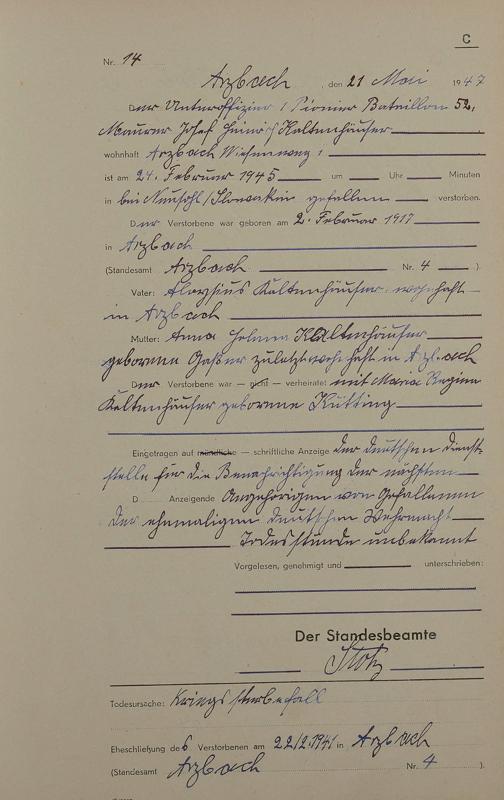 C
Nr. 14
Arzbach, den 21 Mai 1947
Der Unteroffizier / Pionier Bataillon 52,
Maurer Josef Heinrich Kaltenhäuser
wohnhaft Arzbach Wiesenweg 1
ist am 24. Februar 1945 um Uhr Minuten
in bei Neusohl / Slowakei gefallen verstorben.
Der Verstorbene war geboren am 2. Februar 1917
in Arzbach
(Standesamt Arzbach Nr. 4 )
Vater: Aloysius Kaltenhäuser wohnhaft
in Arzbach
Mutter: Anna Helena Kaltenhäuser
geborene Gasser zuletzt wohnhaft in Arzbach
Der Verstorbene war — nicht — verheiratet mit Maria Regina
Kaltenhäuser geborene Kütting
Eingetragen auf mündliche — schriftliche Anzeige der deutschen Dienst-
stelle für die Benachrichtigung der nächsten
D Anzeigende Angehörigen von Gefallenen
der ehemaligen deutschen Wehrmacht
Todesstunde unbekannt
Vorgelesen, genehmigt und unterschrieben:
Der Standesbeamte
Stotz
Todesursache: Kriegssterbefall
Eheschließung des Verstorbenen am 22.2.1941 in Arzbach
(Standesamt Arzbach Nr. 4 ).